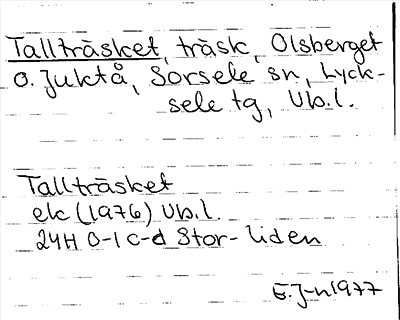 Tallträsket, träsk, Olsberget
o. Juktå, Sorsele sn, Lyck-
sele tg, Vb.l.
Tallträsket
ek (1976) Vb.l.
24H 0-1 c-d Stor-liden
E.J-n 1977